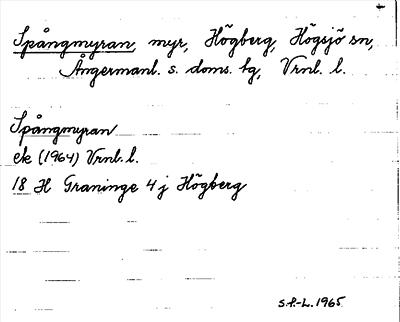 Spångmyran, myr, Högberg, Högsjö sn,
Ångermanl. s. doms. tg, Vrnl. l.
Spångmyran
ek (1964) Vrnl. l.
18 H Graninge 4 j Högberg
S.P.-L. 1965